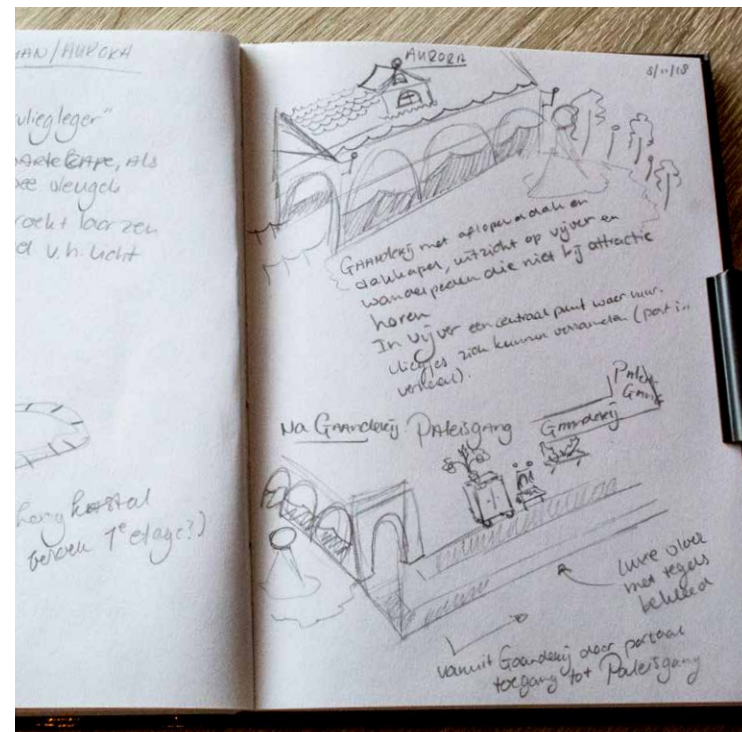 MAN/AURORA
vliegleger"
CAPE, ALS
vleugels
laarzen
v.h. licht
1e etage?)
AURORA
8/11/18
GAANDERIJ met aflopend dak en
dakkapel, uitzicht op vijver en
wandelpaden die niet bij attractie
horen
In vijver een centraal punt waar vuur-
vliegjes zich kunnen verzamelen (part i..
verhaal).
Na GAANDERIJ PALEISGANG
PALEIS
GANG
GAANDERIJ
Luxe vloer
met tegels
bekleed
vanuit Gaanderij door portaal
toegang tot Paleisgang